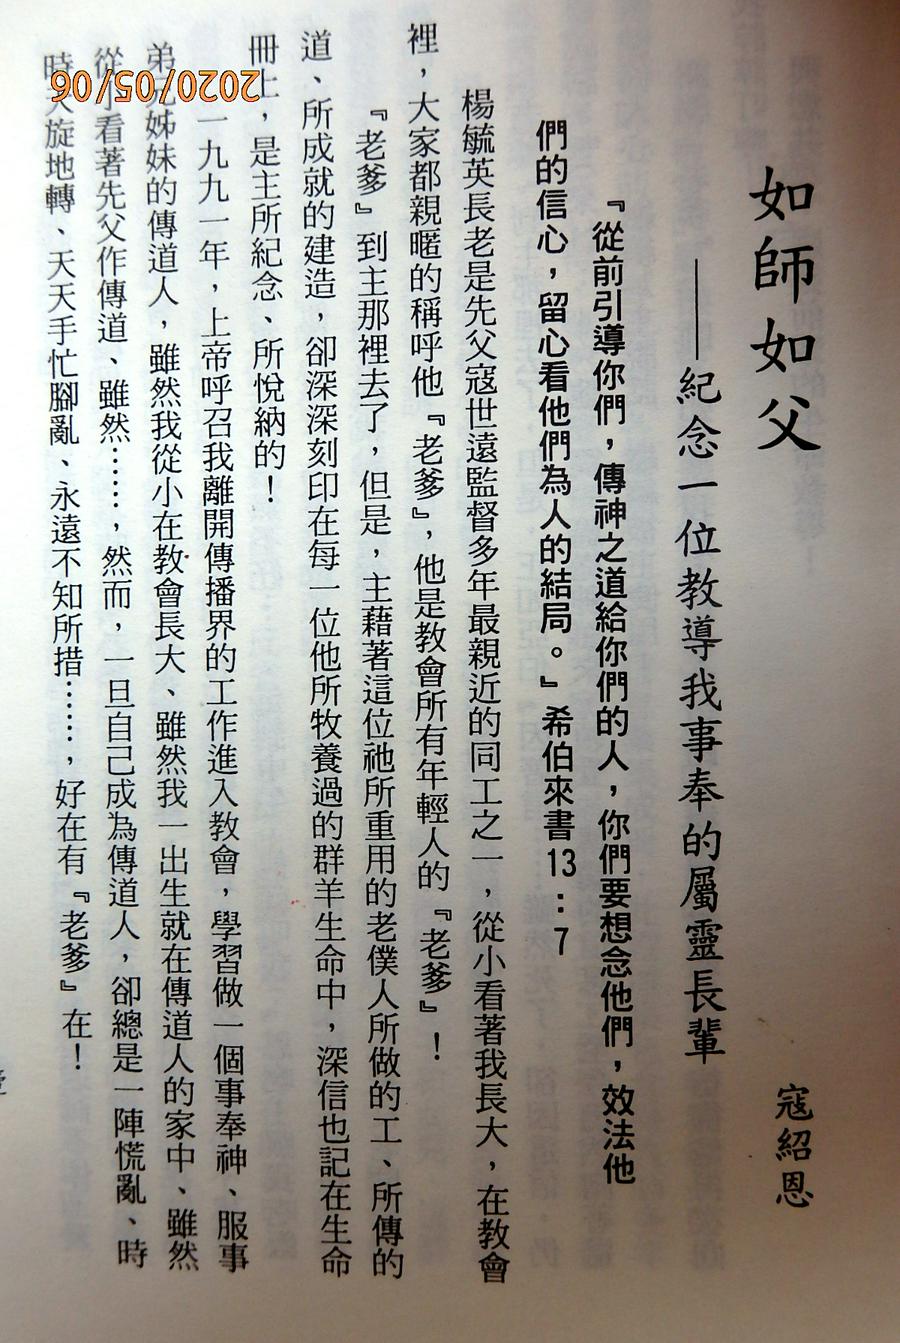 如師如父
——紀念一位教導我事奉的屬靈長輩
寇紹恩
『從前引導你們，傳神之道給你們的人，你們要想念他們，效法他
們的信心，留心看他們為人的結局。』希伯來書13：7
楊毓英長老是先父寇世遠監督多年最親近的同工之一，從小看著我長大，在教會
裡，大家都親暱的稱呼他『老爹』，他是教會所有年輕人的『老爹』！
『老爹』到主那裡去了，但是，主藉著這位祂所重用的老僕人所做的工、所傳的
道、所成就的建造，卻深深刻印在每一位他所牧養過的群羊生命中，深信也記在生命
冊上，是主所紀念、所悅納的！
一九九一年，上帝呼召我離開傳播界的工作進入教會，學習做一個事奉神、服事
弟兄姊妹的傳道人，雖然我從小在教會長大、雖然我一出生就在傳道人的家中、雖然
從小看著先父作傳道、雖然……，然而，一旦自己成為傳道人，卻總是一陣慌亂、時
時天旋地轉、天天手忙腳亂、永遠不知所措……，好在有『老爹』在！
2020/05/06